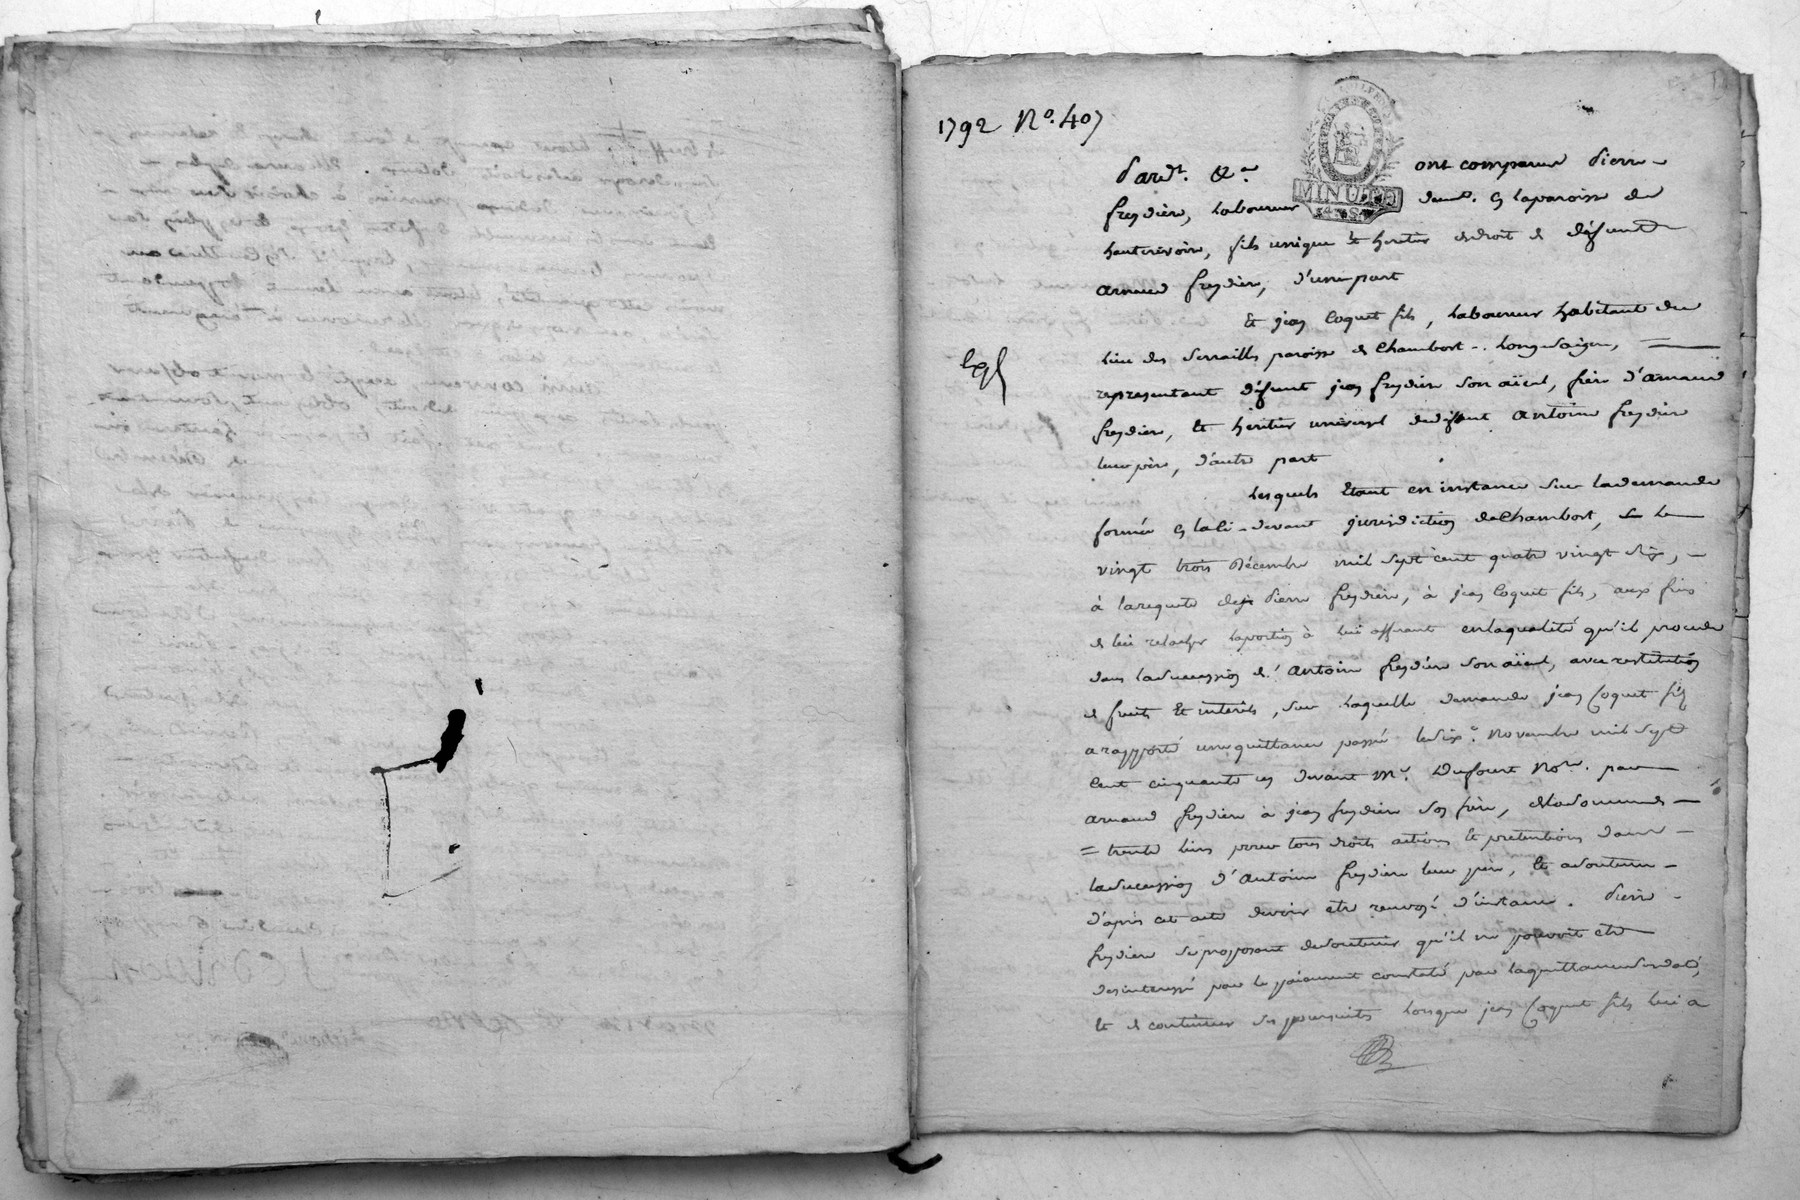 1792 No. 407
MINUTE
4 S
Pardt. &a ont comparus Pierre
freydiere, laboureur demt. en laparoisse de
hauterivoire, fils unique et heritier dedroit de défunt
arnaud freydiere, d'unepart
Et jean Coquet fils, laboureur habitant du
lieu des Serrailles paroisse de Chambost-Longesaigne,
Expé
representant défunt jean freydiere son aïeul, frère d'arnaud
freydiere, et héritier universel dudéfunt antoine freydiere
leur père, d'autre part
Lesquels étant en instance sur lademande
formée en laci-devant jurisdiction deChambost, le
vingt trois Décembre mil sept cent quatre vingt dix,
à larequete de Pierre freydiere, à jean Coquet fils, aux fins
de lui relacher laportion à lui afférant enlaqualité qu'il procede
dans lasuccession d'antoine freydiere son aïeul, avec restitution
de fruits et interêts, sur laquelle demande jean Coquet fils
arapporté unequittance passée ledix Novembre mil sept
Cent cinquante un devant Me. Dufourt Nore. par
arnaud freydiere à jean freydiere son frère, delasomme de
trente livres pour tous droits actions et pretentions dans
lasuccession d'Antoine freydiere leur père, et asoutenu
d'après cet acte devoir etre renvoyé d'instance. Pierre
freydiere seproposant desoutenir qu'il ne pouvoit etre
desinteressé par le paiement constaté par laquittance susdatée,
et de continuer ses poursuites lorsque jean Coquet fils lui a